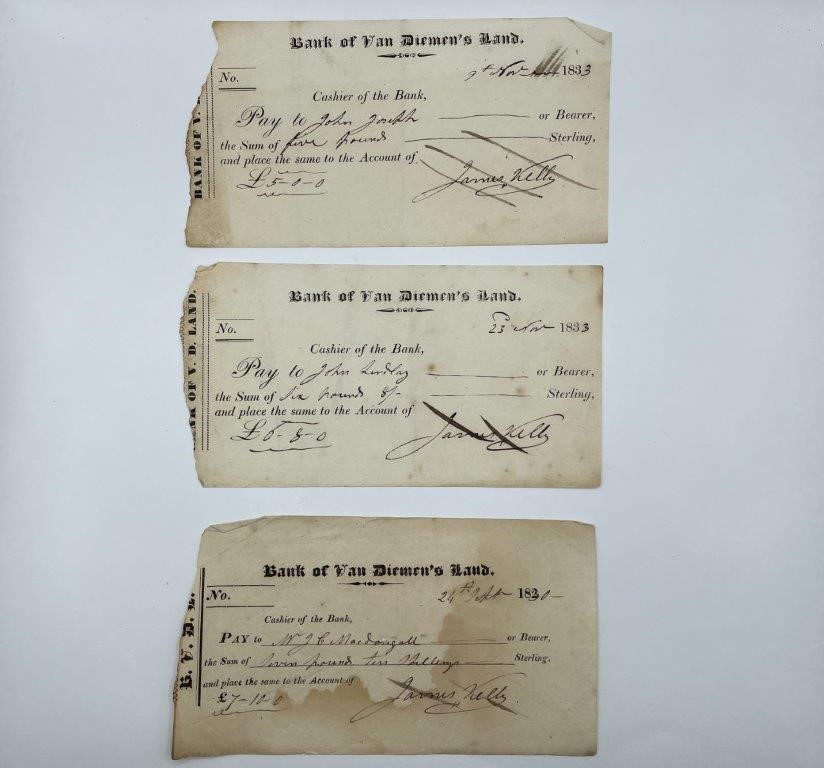 Bank of Van Diemen's Land.
No.
9th Nov 1833
Cashier of the Bank,
Pay to John Joseph or Bearer,
the Sum of five pounds Sterling,
and place the same to the Account of
£5-0-0
James Kelly
BANK OF V.
Bank of Van Diemen's Land.
No.
23 Nov 1833
Cashier of the Bank,
Pay to John Lindlay or Bearer,
the Sum of Six pounds 8/- Sterling,
and place the same to the Account of
£6-8-0
James Kelly
BANK OF V. D. LAND.
Bank of Van Diemen's Land.
No.
24th Sept 1830-
Cashier of the Bank,
PAY to Mr J C Macdougall or Bearer,
the Sum of Seven pounds ten Shillings Sterling,
and place the same to the Account of
£7-10-0
James Kelly
B. V. D. L.